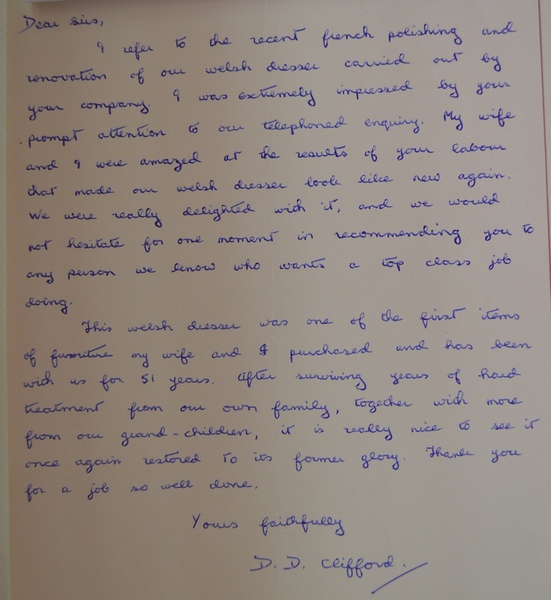 Dear Sirs,
I refer to the recent french polishing and
renovation of our welsh dresser carried out by
your company. I was extremely impressed by your
prompt attention to our telephoned enquiry. My wife
and I were amazed at the results of your labour
that made our welsh dresser look like new again.
We were really delighted with it, and we would
not hesitate for one moment in recommending you to
any person we know who wants a top class job
doing.
This welsh dresser was one of the first items
of furniture my wife and I purchased and has been
with us for 51 years. After surviving years of hard
treatment from our own family, together with more
from our grand-children, it is really nice to see it
once again restored to its former glory. Thank you
for a job so well done.
Yours faithfully
D. D. Clifford.